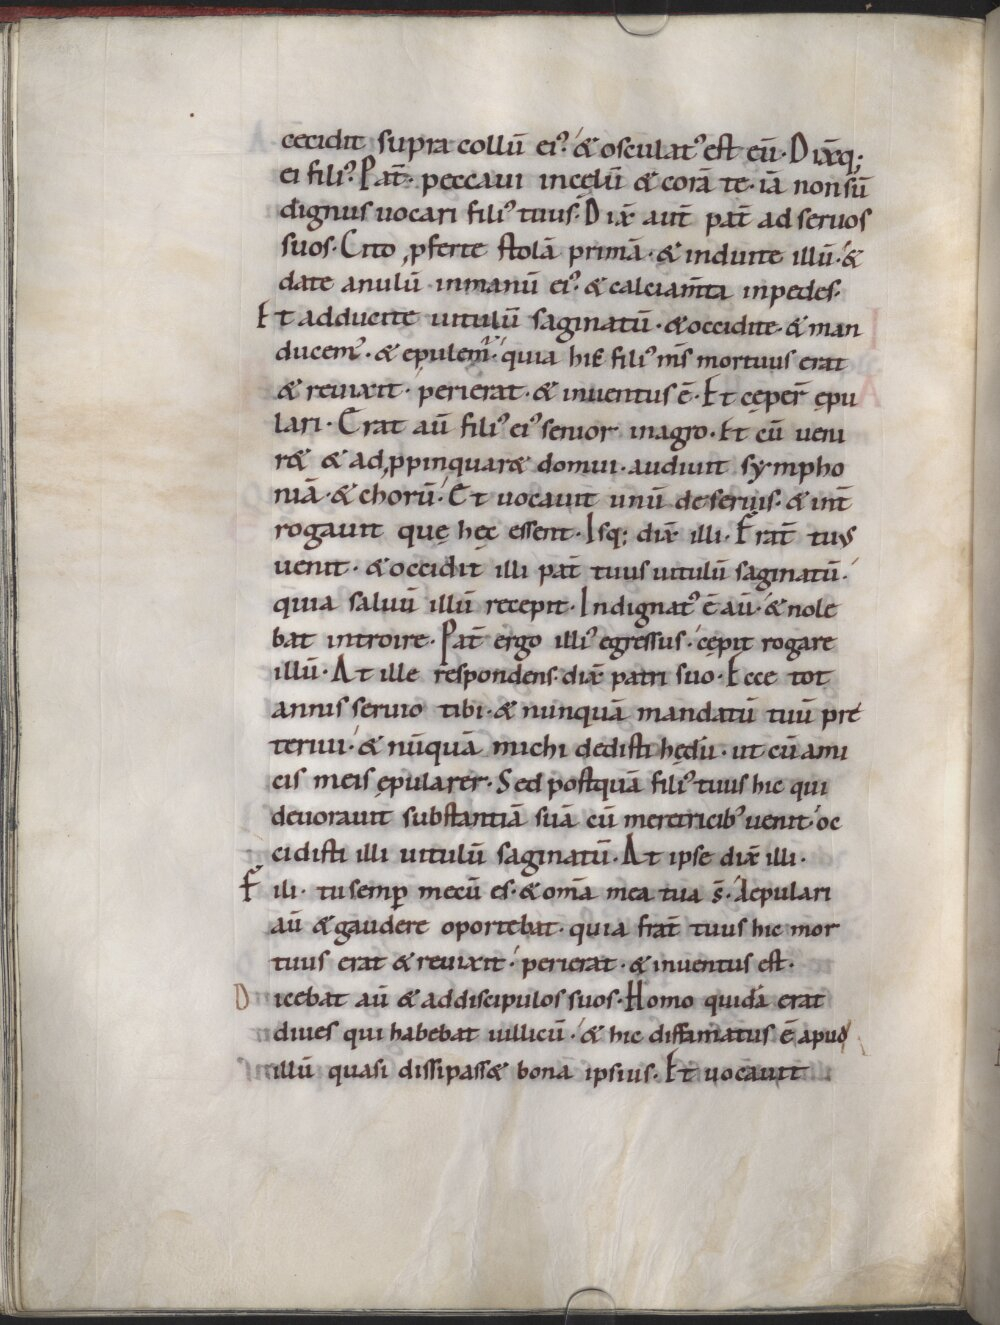 cecidit supra collū ei᾽. & osculat᾽ est eū. Dix̄q;
ei fili᾽. Pat̄. peccavi incęlū & corā te. iā non sū
dignus uocari fili᾽ tuus. Dix̄ aut̄ pat̄ ad seruos
suos. Cito ꝓferte stolā primā. & induite illū. &
date anulū inmanū ei᾽. & calciam̄ta inpedes.
Et adducite uitulū saginatū. & occidite. & man
ducem᾽. & epulem᾽. quia hic fili᾽ m̄s mortuus erat
& reuixit. perierat. & inuentus ē. Et cęper̄ ępu
lari. Erat aū fili᾽ ei᾽ senior inagro. Et cū veni
r& & adꝓpinquar& domui. audiuit sympho
niā. & chorū. Et uocauit unū deseruis. & int̄
rogauit quę hęc essent. Isq; dix̄ illi. Frat̄ tuus
uenit. & occidit illi pat̄ tuus uitulū saginatū.
quia saluū illū recepit. Indignat᾽ ē aū. & nole
bat introire. Pat̄ ergo illi᾽ egressus. cępit rogare
illū. At ille respondens dix̄ patri suo. Ecce tot
annis seruio tibi. & nunquā mandatū tuū pre
teriui. & nūquā michi dedisti hędū. ut cū ami
cis meis ępularer. Sed postquā fili᾽ tuus hic qui
deuorauit substantiā suā cū meretricib᾽ uenit. oc
cidisti illi uitulū saginatū. At ipse dix̄ illi.
Fili. tu semꝑ mecū es. & om̄a mea tua s̄. Aepulari
aū & gaudere oportebat. quia frat̄ tuus hic mor
tuus erat & reuixit. perierat. & inuentus est.
Dicebat aū & addiscipulos suos. Homo quidā erat
diues qui habebat uillicū. & hic diffamatus ē apud
illū quasi dissipass& bona ipsius. Et uocauit